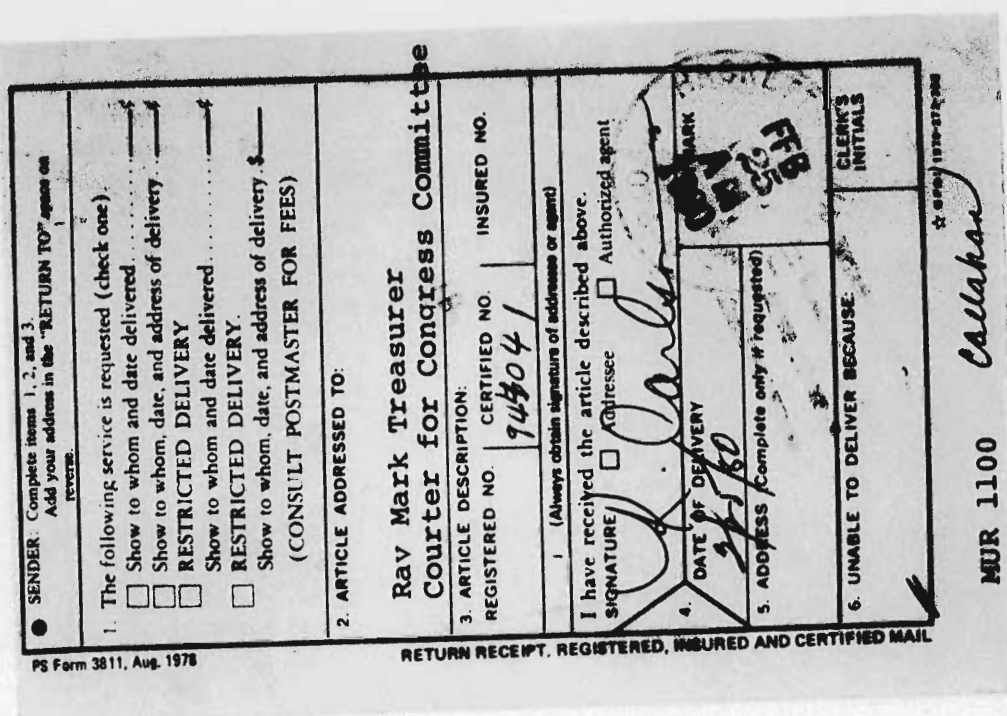 ● SENDER: Complete items 1, 2, and 3.
Add your address in the "RETURN TO" space on
reverse.
1. The following service is requested (check one)
☐ Show to whom and date delivered ........... ¢
☐ Show to whom, date, and address of delivery .. ¢
☐ RESTRICTED DELIVERY
Show to whom and date delivered ........... ¢
☐ RESTRICTED DELIVERY.
Show to whom, date, and address of delivery. $
(CONSULT POSTMASTER FOR FEES)
2. ARTICLE ADDRESSED TO:
Rav Mark Treasurer
Courter for Congress Committee
3. ARTICLE DESCRIPTION:
REGISTERED NO. CERTIFIED NO. INSURED NO.
(Always obtain signature of addressee or agent)
I have received the article described above.
SIGNATURE ☐ Addressee ☐ Authorized agent
4. DATE OF DELIVERY
MARK
FEB
25
5. ADDRESS (Complete only if requested)
6. UNABLE TO DELIVER BECAUSE:
CLERK'S
INITIALS
PS Form 3811, Aug. 1978
RETURN RECEIPT, REGISTERED, INSURED AND CERTIFIED MAIL
MUR 1100 Callahan